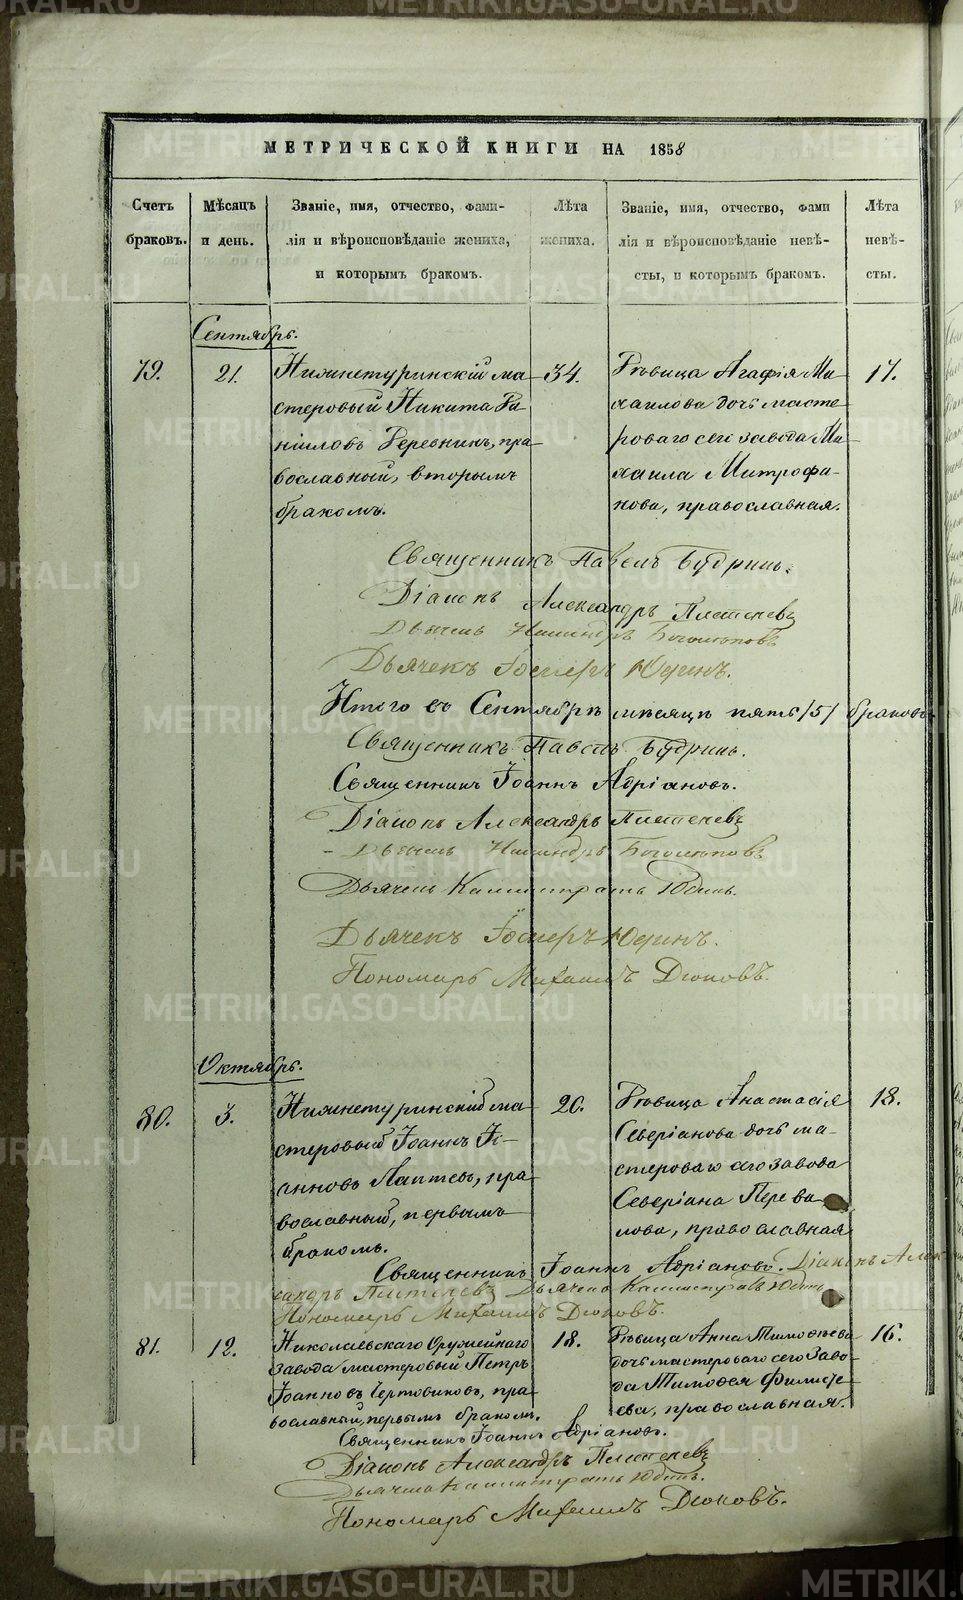 METRIKI.GASO-URAL.RU
МЕТРИЧЕСКОЙ КНИГИ НА 1858
Счетъ браковъ.
Мѣсяцъ и день.
Званіе, имя, отчество, фами-
лія и вѣроисповѣданіе жениха,
и которымъ бракомъ.
Лѣта жениха.
Званіе, имя, отчество, фами
лія и вѣроисповѣданіе невѣ-
сты, и которымъ бракомъ.
Лѣта невѣ-
сты.
Сентябрь.
79.
21.
Нижнетуринскій ма-
стеровый Никита Да-
ніиловъ Деревнинъ, пра-
вославный, вторымъ
бракомъ.
34.
Дѣвица Агафія Ми-
хаилова дочь масте-
роваго сего завода Ми-
хаила Митрофа-
нова, православная.
17.
Священникъ Павелъ Будринъ.
Діаконъ Александръ Плетеневъ
Дьячекъ Никандръ Боголюповъ
Дьячекъ Іосифъ Юдинъ.
Итого въ Сентябрѣ мѣсяцѣ пять /5/ браковъ
Священникъ Павелъ Будринъ.
Священникъ Іоаннъ Адріановъ.
Діаконъ Александръ Плетеневъ
Дьячекъ Никандръ Боголюповъ
Дьячекъ Каллистратъ Юдинъ.
Дьячекъ Іосифъ Юдинъ.
Пономарь Михаилъ Дюковъ.
Октябрь.
80.
3.
Нижнетуринскій ма-
стеровый Іоаннъ Іо-
анновъ Лаптевъ, пра-
вославный, первымъ
бракомъ.
20.
Дѣвица Анастасія
Северіанова дочь ма-
стероваго сего завода
Северіана Перева-
лова, православная
18.
Священникъ Іоаннъ Адріановъ. Діаконъ Алек-
сандръ Плетеневъ Дьячекъ Каллистратъ Юдинъ
Пономарь Михаилъ Дюковъ.
81.
12.
Николаевскаго Оружейнаго
Завода мастеровый Петръ
Іоанновъ Чертовиковъ, пра-
вославный, первымъ бракомъ.
18.
Дѣвица Анна Тимоѳеева
дочь мастероваго сего Заво-
да Тимоѳея Филисѣ-
ева, православная.
16.
Священникъ Іоаннъ Адріановъ.
Діаконъ Александръ Плетеневъ
Дьячекъ Каллистратъ Юдинъ.
Пономарь Михаилъ Дюковъ.